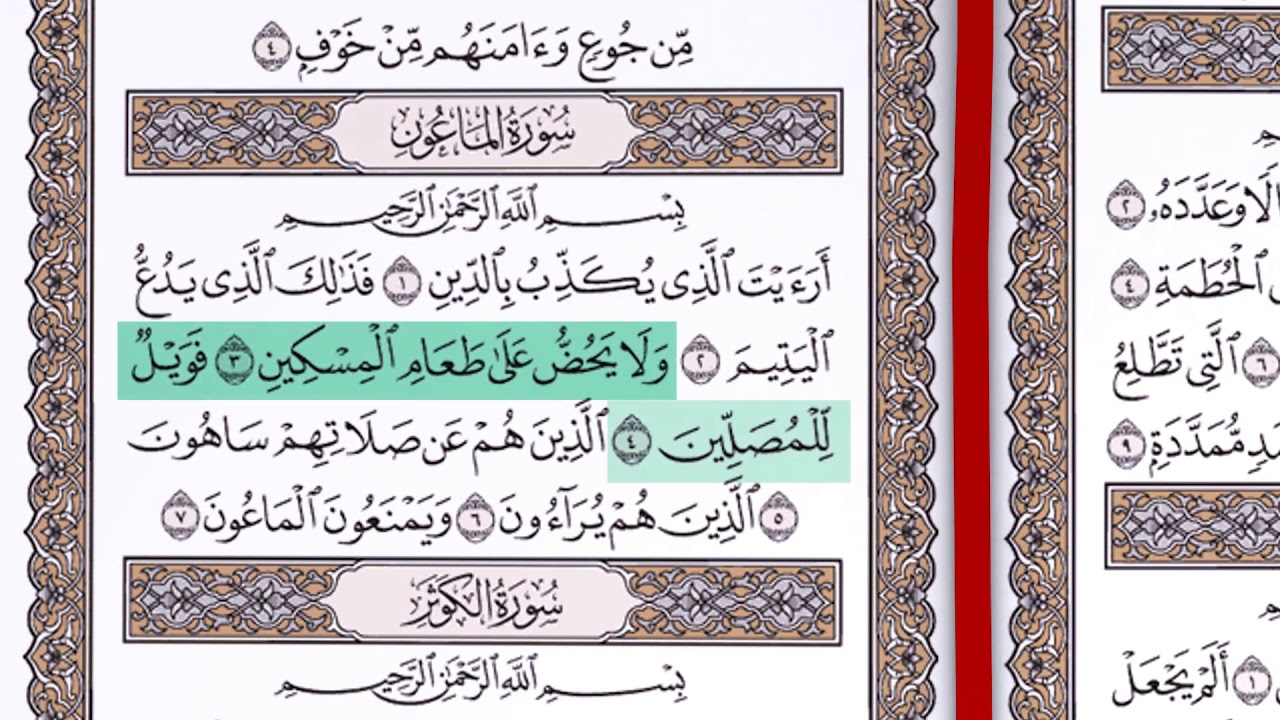 مِّن جُوعٍ وَءَامَنَهُم مِّنْ خَوْفٍ ٤
سُورَةُ المَاعُونِ
بِسْمِ ٱللَّهِ ٱلرَّحْمَٰنِ ٱلرَّحِيمِ
أَرَءَيْتَ ٱلَّذِى يُكَذِّبُ بِٱلدِّينِ ١ فَذَٰلِكَ ٱلَّذِى يَدُعُّ
ٱلْيَتِيمَ ٢ وَلَا يَحُضُّ عَلَىٰ طَعَامِ ٱلْمِسْكِينِ ٣ فَوَيْلٌ
لِّلْمُصَلِّينَ ٤ ٱلَّذِينَ هُمْ عَن صَلَاتِهِمْ سَاهُونَ
٥ ٱلَّذِينَ هُمْ يُرَآءُونَ ٦ وَيَمْنَعُونَ ٱلْمَاعُونَ ٧
سُورَةُ الكَوْثَرَ
بِسْمِ ٱللَّهِ ٱلرَّحْمَٰنِ ٱلرَّحِيمِ
وَعَدَّدَهُۥ ٢
ٱلْحُطَمَةِ ٤
٦ ٱلَّتِى تَطَّلِعُ
مُّمَدَّدَةٍۭ ٩
١ أَلَمْ يَجْعَلْ